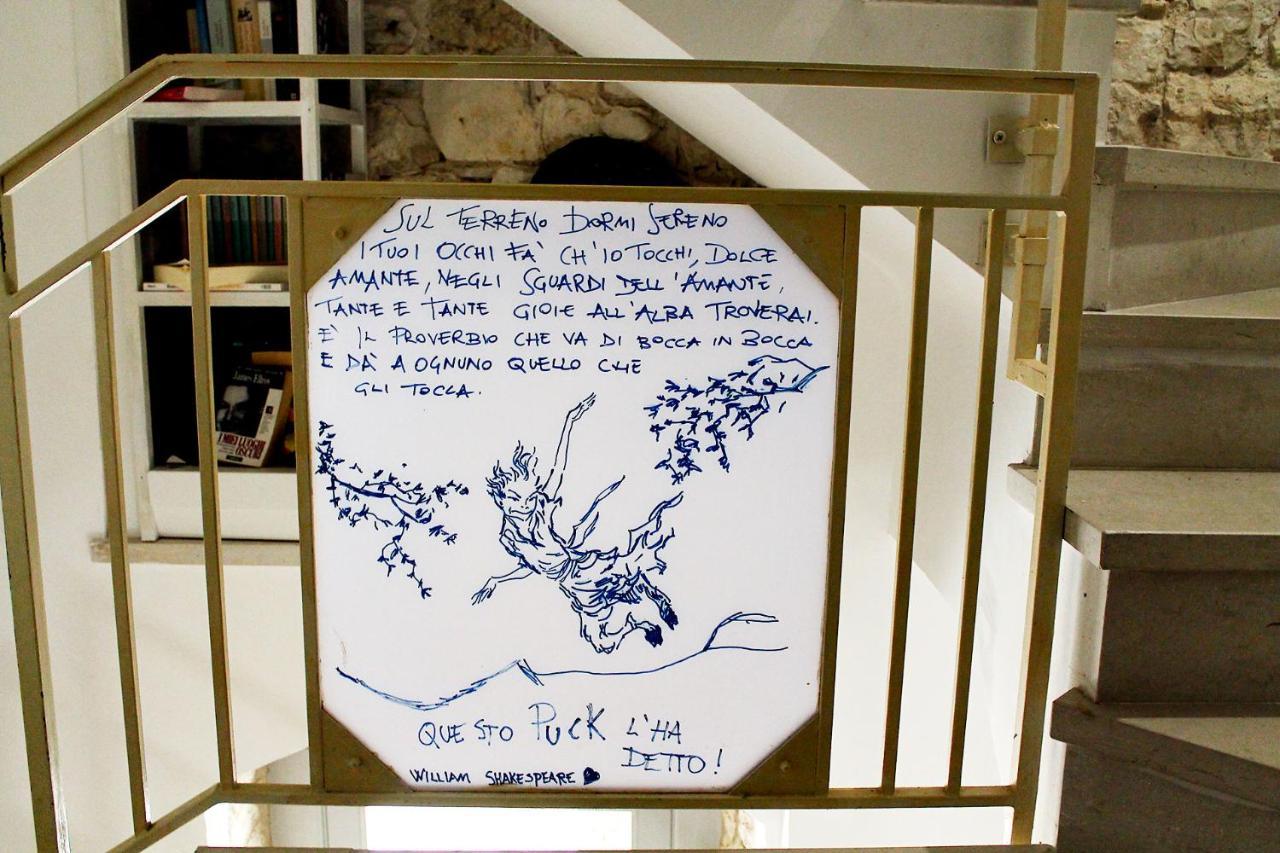 SUL TERRENO DORMI SERENO
I TUOI OCCHI FA' CH'IO TOCCHI, DOLCE
AMANTE, NEGLI SGUARDI DELL'AMANTE,
TANTE E TANTE GIOIE ALL'ALBA TROVERAI.
E' IL PROVERBIO CHE VA DI BOCCA IN BOCCA
E DÀ A OGNUNO QUELLO CHE
GLI TOCCA.
QUESTO PUCK L'HA
DETTO!
WILLIAM SHAKESPEARE
James Ellroy
I MIEI LUOGHI
OSCURI